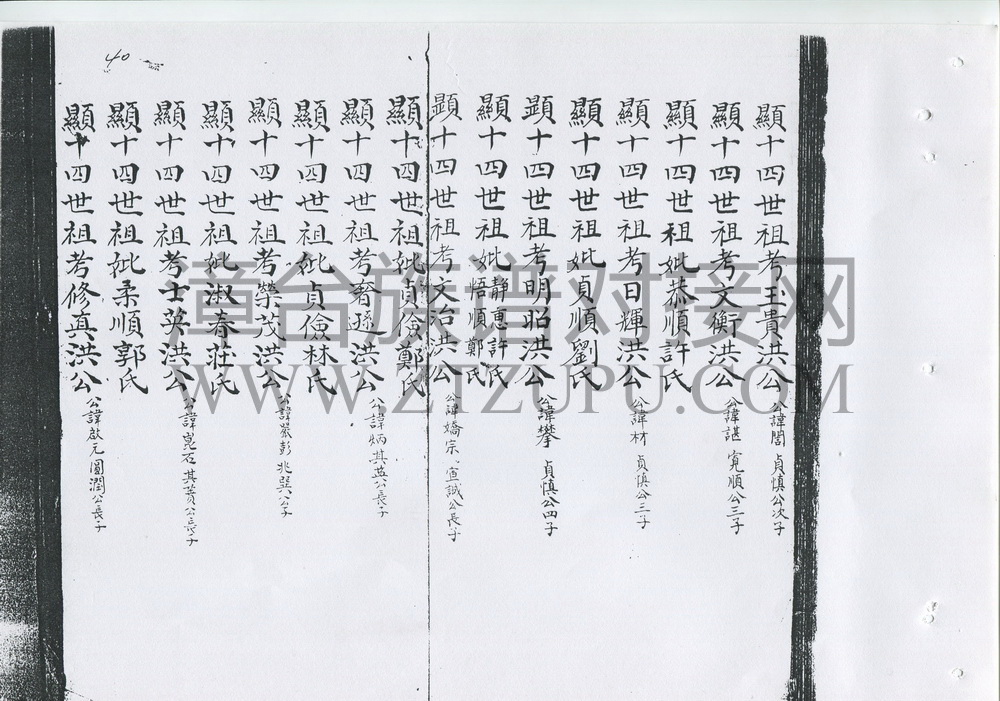 顯十四世祖考玉貴洪公 公諱閏 貞慎公次子
顯十四世祖考文衡洪公 公諱諶 寬順公三子
顯十四世祖妣恭順許氏
顯十四世祖考日輝洪公 公諱材 貞慎公三子
顯十四世祖妣貞順劉氏
顯十四世祖考明昭洪公 公諱攀 貞慎公四子
顯十四世祖妣靜惠許氏 悟順鄭氏
顯十四世祖考文治洪公 公諱嬌宗、宣誠公長子
顯十四世祖妣貞儉鄭氏
顯十四世祖考奢遜洪公 公諱炳 其英公長子
顯十四世祖妣貞儉林氏
顯十四世祖考榮茂洪公 公諱 彭 兆巽公子
顯十四世祖妣淑春莊氏
顯十四世祖考士英洪公 公諱崑石 其黃公長子
顯十四世祖妣柔順郭氏
顯十四世祖考修真洪公 公諱啟元 圓潤公長子
40
漳台族谱对接网
WWW.ZTZUPU.COM